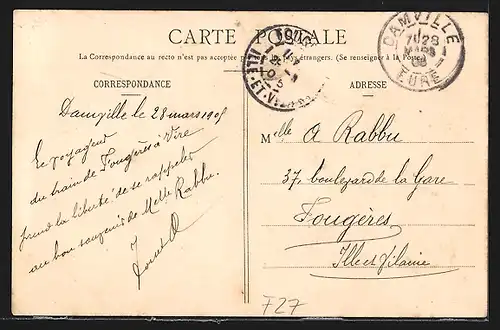 CARTE POSTALE
La Correspondance au recto n'est pas acceptée par les pays étrangers. (Se renseigner à la Poste)
CORRESPONDANCE
Damville le 28 mars 1905
Le voyageur
du train de Fougères à Vire
prend la liberté de se rappeler
au bon souvenir de Melle Rabbu.
ADRESSE
Melle A Rabbu
37, boulevard de la Gare
Fougères
Ille et Vilaine
DAMVILLE
28
MARS
EURE
ILLE-ET-V
F27